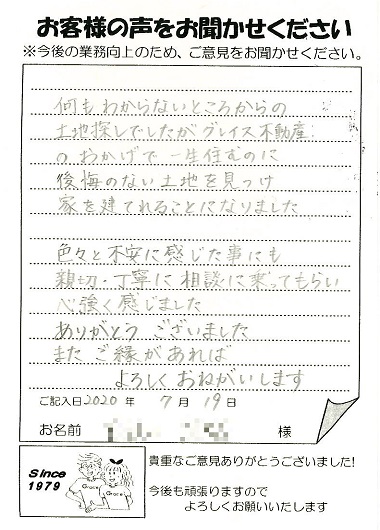 お客様の声をお聞かせください
※今後の業務向上のため、ご意見をお聞かせください。
何もわからないところからの
土地探しでしたがグレイス不動産
のおかげで一生住むのに
後悔のない土地を見つけ
家を建てれることになりました
色々と不安に感じた事にも
親切・丁寧に相談に乗ってもらい
心強く感じました
ありがとうございました
またご縁があれば
よろしくおねがいします
ご記入日2020年 7月 19日
お名前 様
Since
1979
Grace
Grace
貴重なご意見ありがとうございました!
今後も頑張りますので
よろしくお願いいたします